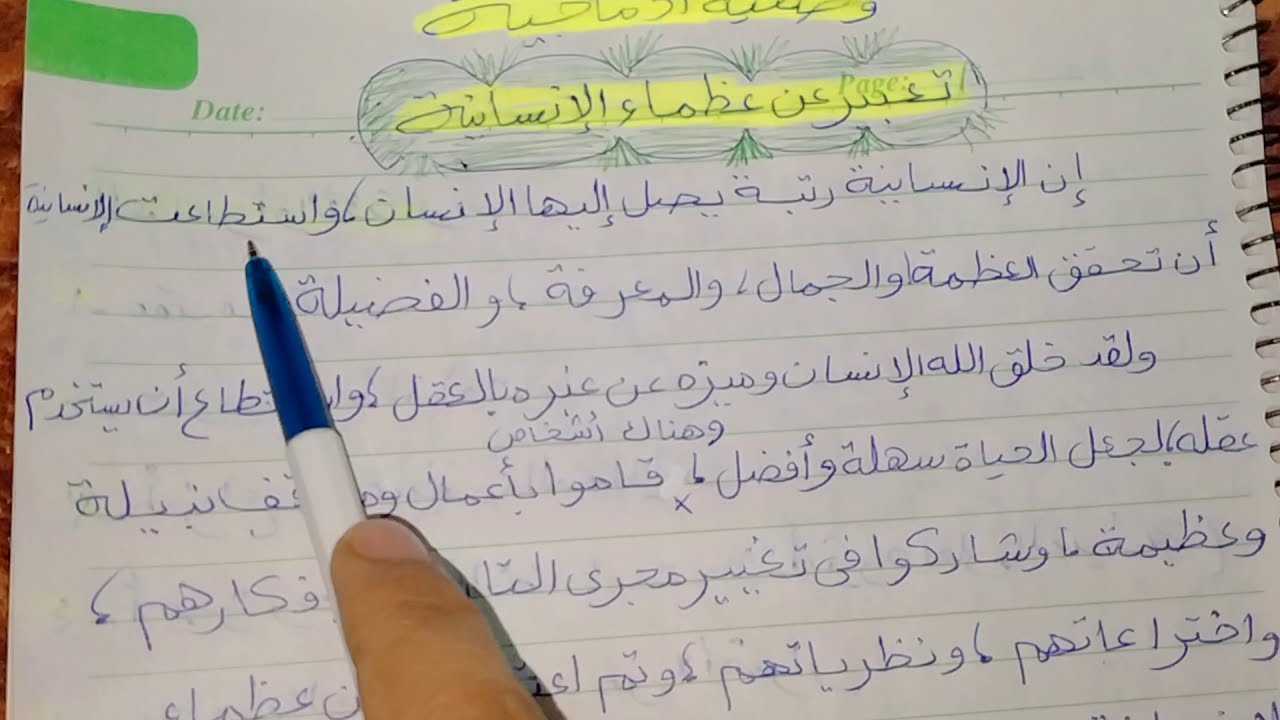 وضعية ادماجية
Date:
Page:
تعبير عن عظماء الإنسانية
إن الإنسانية رتبة يصل إليها الإنسان، واستطاعت الإنسانية
أن تحقق العظمة والجمال، والمعرفة، والفضيلة
ولقد خلق الله الإنسان وميزه عن غيره بالعقل، أن يستخدم
وهناك أشخاص
عقله لجعل الحياة سهلة وأفضل، قاموا بأعمال نبيلة
وعظيمة، وشاركوا في تغيير مجرى
واختراعاتهم، ونظرياتهم، وتم عظماء